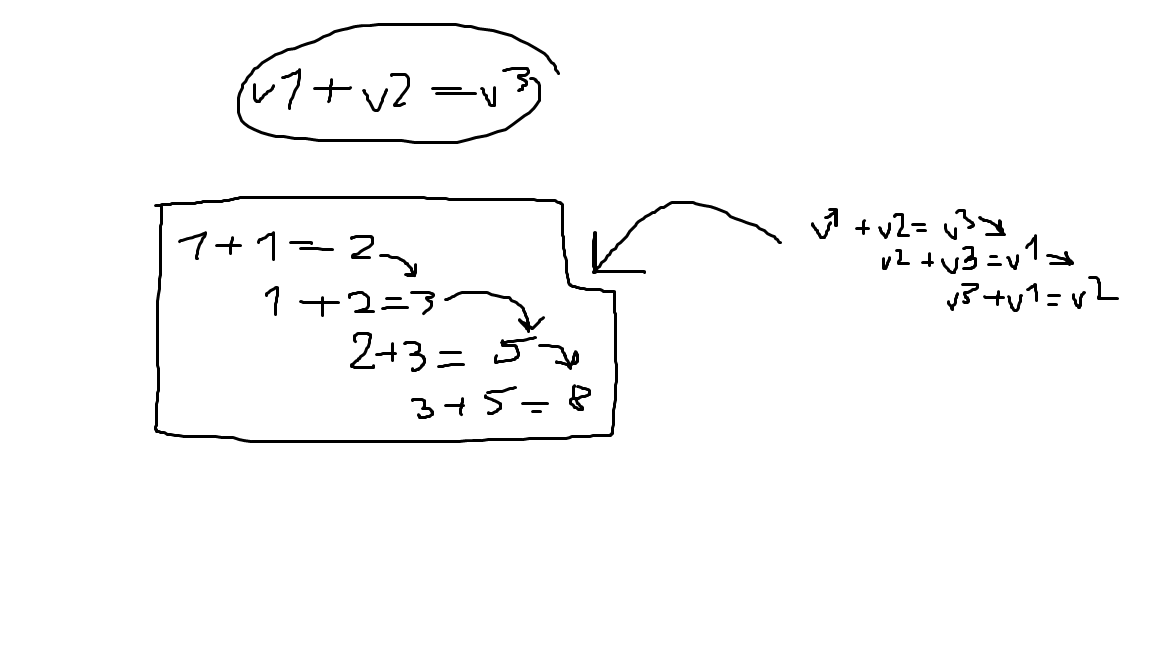 v1+v2=v3
1+1=2
1+2=3
2+3=5
3+5=8
v1+v2=v3
v2+v3=v1
v3+v1=v2